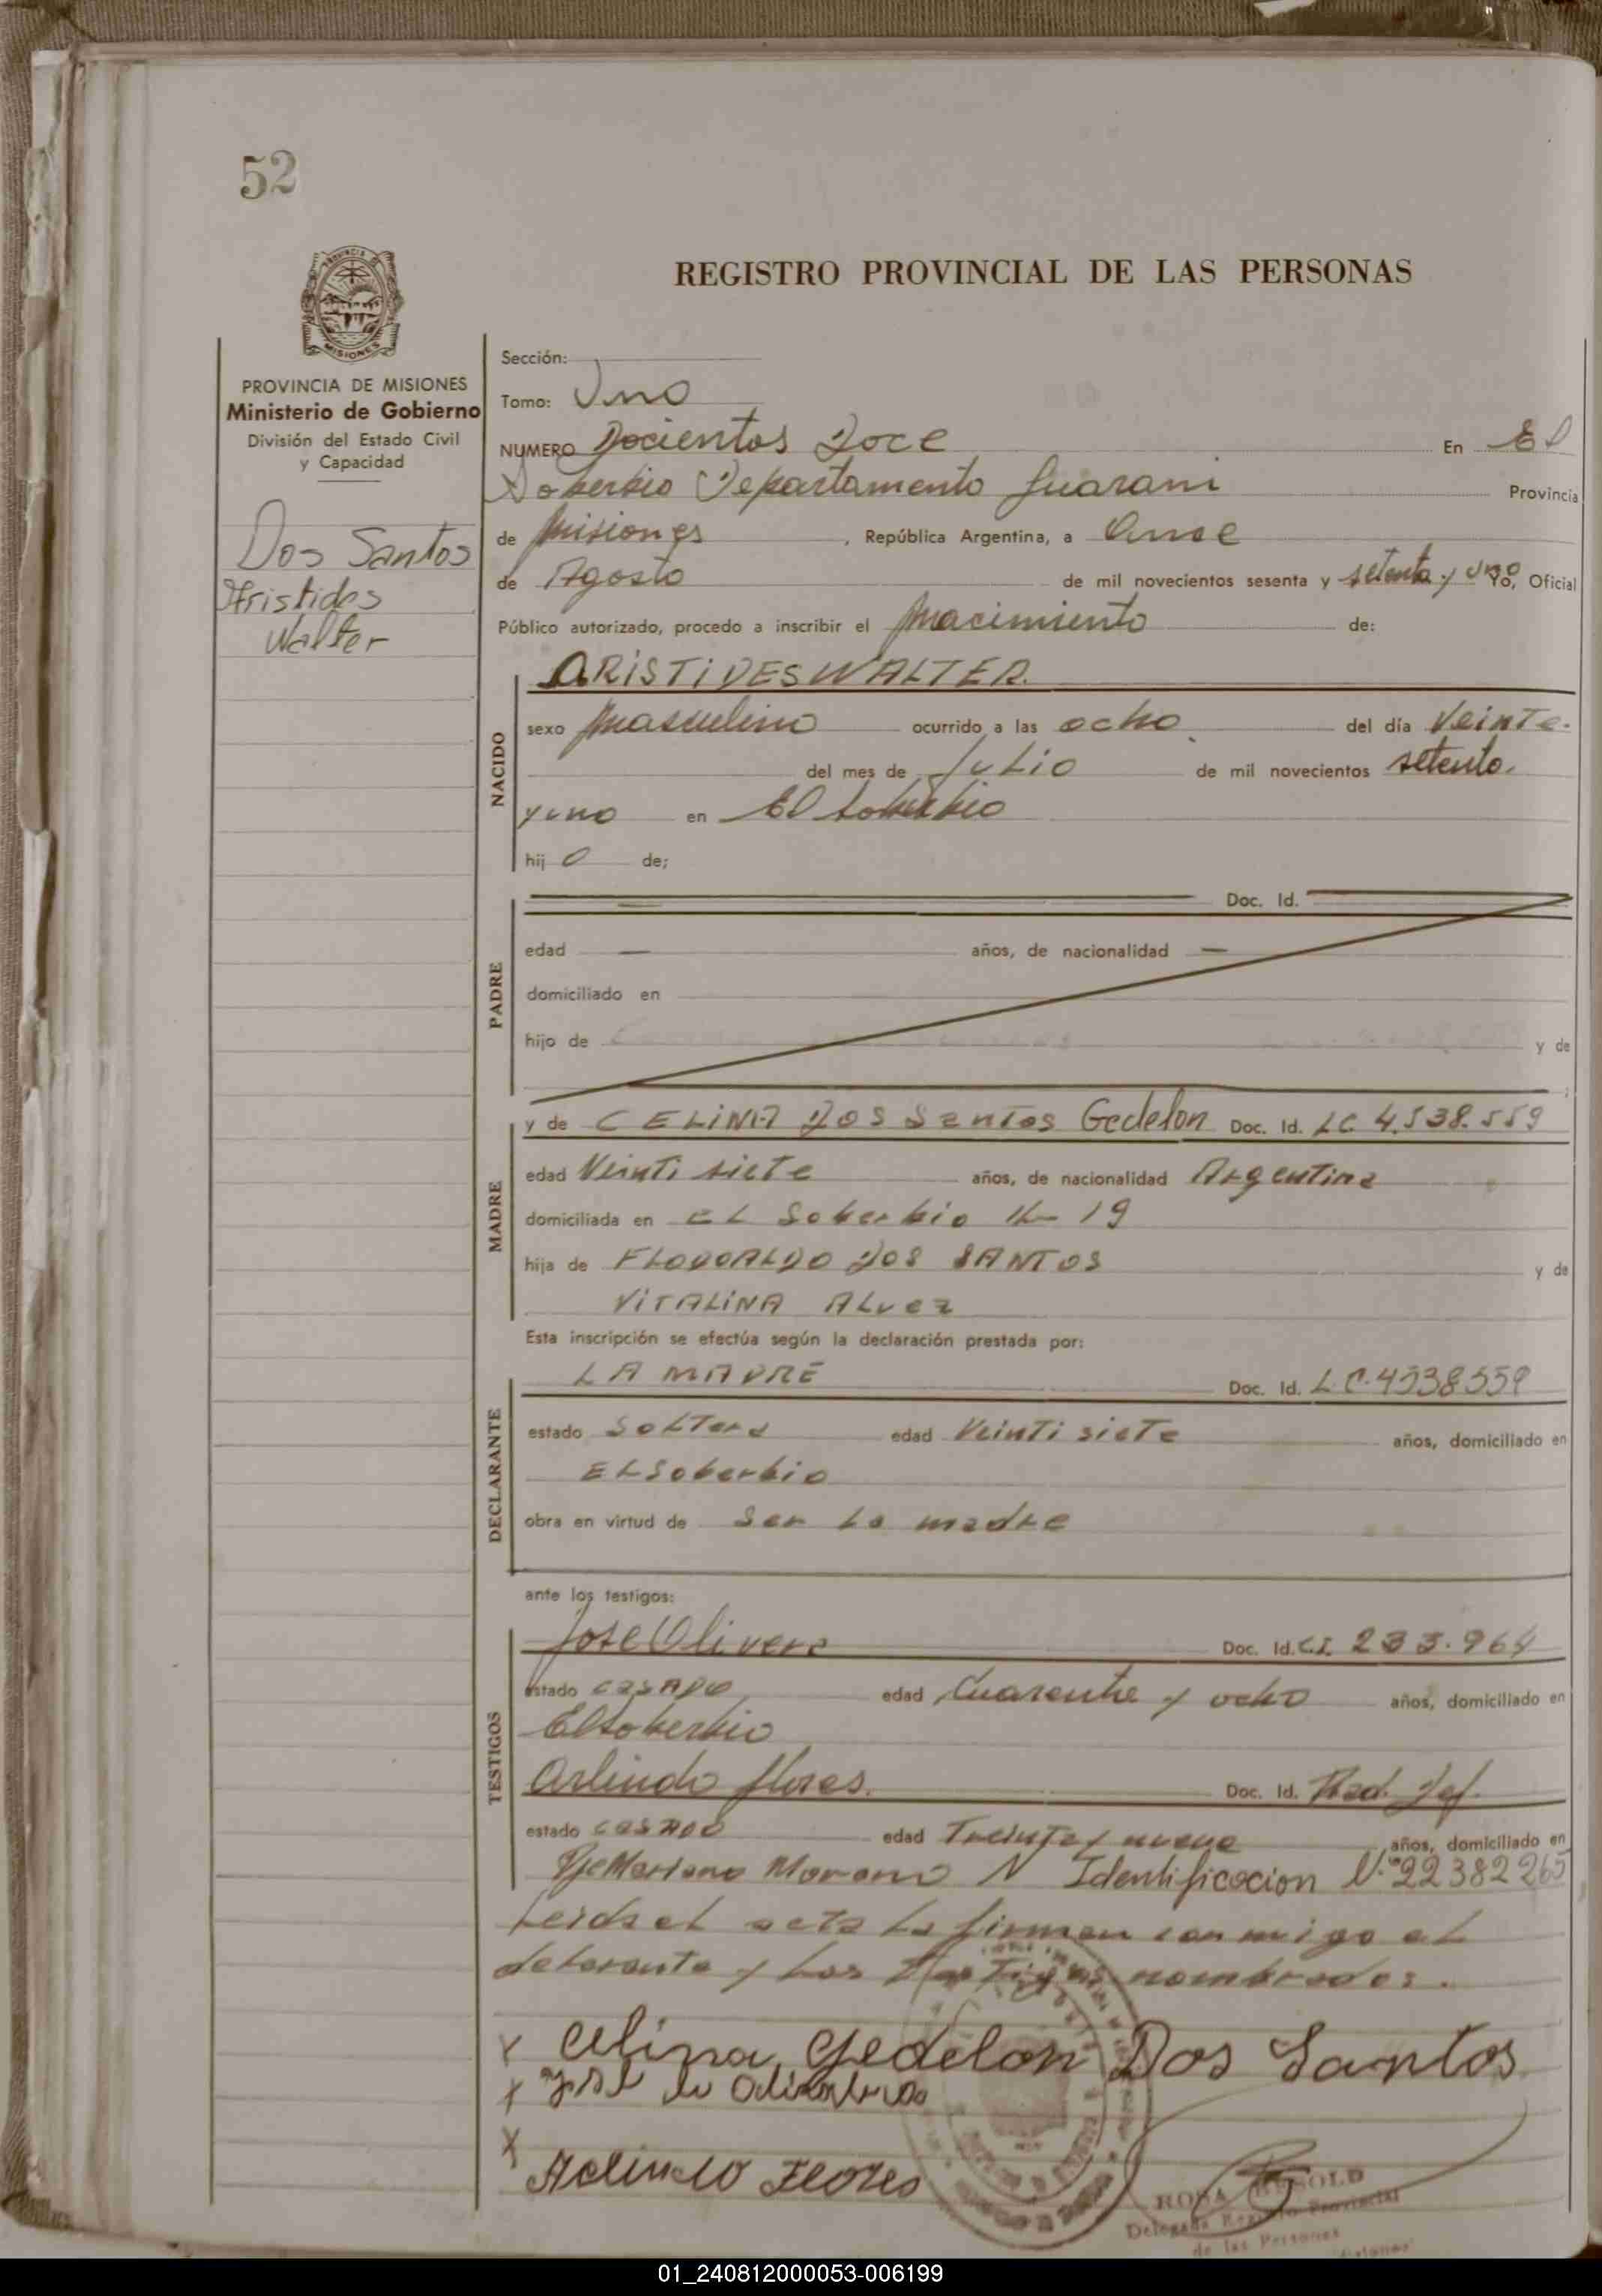 52
REGISTRO PROVINCIAL DE LAS PERSONAS
MISIONES
PROVINCIA DE MISIONES
Ministerio de Gobierno
División del Estado Civil
y Capacidad
Dos Santos
Aristides
Walter
Sección:
Tomo: Uno
NUMERO Docientos Doce En El
Soberbio Departamento Guarani Provincia
de Misiones, República Argentina, a Once
de Agosto de mil novecientos sesenta y setenta y uno Yo, Oficial
Público autorizado, procedo a inscribir el Nacimiento de:
NACIDO
ARISTIDES WALTER.
sexo masculino ocurrido a las ocho del día Veinte
del mes de Julio de mil novecientos setenta
y uno en El Soberbio
hij o de;
PADRE
Doc. Id.
edad — años, de nacionalidad —
domiciliado en
hijo de y de
MADRE
y de CELINA DOS Santos Gedelon Doc. Id. LC 4.538.559
edad Veinti siete años, de nacionalidad Argentina
domiciliada en EL Soberbio 19
hija de FLODOALDO DOS SANTOS y de
VITALINA ALvez
Esta inscripción se efectúa según la declaración prestada por:
DECLARANTE
LA MADRE Doc. Id. L.C. 4538559
estado Soltera edad Veinti siete años, domiciliado en
EL Soberbio
obra en virtud de Ser la madre
ante los testigos:
TESTIGOS
Jose Olivera Doc. Id. C.I. 233.964
estado casado edad Cuarenta y ocho años, domiciliado en
El Soberbio
Arlindo flores. Doc. Id.
estado casado edad Treinta y nueve años, domiciliado en
Mariano Moreno N Identificacion N.º 22382265
Leida el acta la firman conmigo el
declarante y los Testigos nombrados.
x Celina, Gedelon Dos Santos
x
x
Aelindo Flores
ROSA
Delegada Registro Provincial
de las Personas
01_240812000053-006199